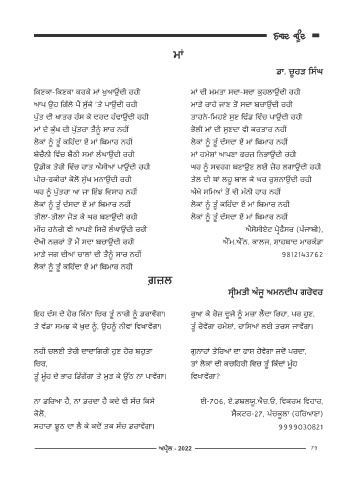 ਸ਼ਬਦ ਬੂੰਦ
ਮਾਂ
ਡਾ. ਚੂਹੜ ਸਿੰਘ
ਕਿਣਕਾ-ਕਿਣਕਾ ਕਰਕੇ ਮਾਂ ਖੁਆਉਂਦੀ ਰਹੀ
ਆਪ ਉਹ ਗਿੱਲੇ ਪੈ ਸੁੱਕੇ 'ਤੇ ਪਾਉਂਦੀ ਰਹੀ
ਪੁੱਤ ਦੀ ਖਾਤਰ ਹੱਸ ਕੇ ਦਰਦ ਹੰਢਾਉਂਦੀ ਰਹੀ
ਮਾਂ ਦੇ ਕੁੱਖ ਦੀ ਪੁੱਤਰਾ ਤੈਨੂੰ ਸਾਰ ਨਹੀਂ
ਲੋਕਾਂ ਨੂੰ ਤੂੰ ਕਹਿੰਦਾ ਏਂ ਮਾਂ ਬਿਮਾਰ ਨਹੀਂ
ਬੇਚੈਨੀ ਵਿੱਚ ਬੈਠੀ ਸਮਾਂ ਲੰਘਾਉਂਦੀ ਰਹੀ
ਉਡੀਕ ਤੇਰੀ ਵਿੱਚ ਰਾਤ ਔਸੀਆਂ ਪਾਉਂਦੀ ਰਹੀ
ਪੀਰ-ਫਕੀਰਾਂ ਕੋਲੋਂ ਸੁੱਖ ਮਨਾਉਂਦੀ ਰਹੀ
ਘਰ ਨੂੰ ਪੁੱਤਰਾ ਆ ਜਾ ਇੰਝ ਵਿਸਾਰ ਨਹੀਂ
ਲੋਕਾਂ ਨੂੰ ਤੂੰ ਦੱਸਦਾ ਏਂ ਮਾਂ ਬਿਮਾਰ ਨਹੀਂ
ਤੀਲਾ-ਤੀਲਾ ਜੋੜ ਕੇ ਘਰ ਬਣਾਉਂਦੀ ਰਹੀ
ਮੀਂਹ ਹਨੇਰੀ ਵੀ ਆਪਣੇ ਸਿਰੋਂ ਲੰਘਾਉਂਦੀ ਰਹੀ
ਦੋਖੀ ਨਜ਼ਰਾਂ ਤੋਂ ਮੈਂ ਸਦਾ ਬਚਾਉਂਦੀ ਰਹੀ
ਮਾੜੇ ਜਗ ਦੀਆਂ ਚਾਲਾਂ ਦੀ ਤੈਨੂੰ ਸਾਰ ਨਹੀਂ
ਲੋਕਾਂ ਨੂੰ ਤੂੰ ਕਹਿੰਦਾ ਏਂ ਮਾਂ ਬਿਮਾਰ ਨਹੀਂ
ਮਾਂ ਦੀ ਮਮਤਾ ਸਦਾ-ਸਦਾ ਕੁਰਲਾਉਂਦੀ ਰਹੀ
ਮਾੜੇ ਰਾਹੇ ਜਾਣ ਤੋਂ ਸਦਾ ਬਚਾਉਂਦੀ ਰਹੀ
ਤਾਹਨੇ-ਮਿਹਣੇ ਸੁਣ ਢਿੱਡ ਵਿੱਚ ਪਾਉਂਦੀ ਰਹੀ
ਭੋਲੀ ਮਾਂ ਦੀ ਸੁਣਦਾ ਵੀ ਕਰਤਾਰ ਨਹੀਂ
ਲੋਕਾਂ ਨੂੰ ਤੂੰ ਦੱਸਦਾ ਏਂ ਮਾਂ ਬਿਮਾਰ ਨਹੀਂ
ਮਾਂ ਹਮੇਸ਼ਾਂ ਆਪਣਾ ਫਰਜ਼ ਨਿਭਾਉਂਦੀ ਰਹੀ
ਘਰ ਨੂੰ ਸਵਰਗ ਬਣਾਉਣ ਲਈ ਜ਼ੋਰ ਲਗਾਉਂਦੀ ਰਹੀ
ਤੇਲ ਦੀ ਥਾਂ ਲਹੂ ਬਾਲ ਕੇ ਘਰ ਰੁਸ਼ਨਾਉਂਦੀ ਰਹੀ
ਔਖੇ ਸਮਿਆਂ ਤੋਂ ਵੀ ਮੰਨੀ ਹਾਰ ਨਹੀਂ
ਲੋਕਾਂ ਨੂੰ ਤੂੰ ਕਹਿੰਦਾ ਏਂ ਮਾਂ ਬਿਮਾਰ ਨਹੀਂ
ਲੋਕਾਂ ਨੂੰ ਤੂੰ ਦੱਸਦਾ ਏਂ ਮਾਂ ਬਿਮਾਰ ਨਹੀਂ
ਐਸੋਸੀਏਟ ਪ੍ਰੋਫੈਸਰ (ਪੰਜਾਬੀ),
ਐੱਮ.ਐੱਨ. ਕਾਲਜ, ਸ਼ਾਹਬਾਦ ਮਾਰਕੰਡਾ
9812143762
ਗ਼ਜ਼ਲ
ਸ੍ਰੀਮਤੀ ਅੰਜੂ ਅਮਨਦੀਪ ਗਰੋਵਰ
ਇਹ ਦੱਸ ਦੇ ਹੋਰ ਕਿੰਨਾ ਚਿਰ ਤੂੰ ਨਾਰੀ ਨੂੰ ਡਰਾਵੇਂਗਾ।
ਤੇ ਵੱਡਾ ਸਮਝ ਕੇ ਖੁਦ ਨੂੰ, ਉਹਨੂੰ ਨੀਵਾਂ ਵਿਖਾਵੇਂਗਾ।
ਨਹੀਂ ਚਲਣੀ ਤੇਰੀ ਦਾਦਾਗਿਰੀ ਹੁਣ ਹੋਰ ਬਹੁਤਾ
ਚਿਰ,
ਤੂੰ ਮੂੰਹ ਦੇ ਭਾਰ ਡਿੱਗੇਂਗਾ ਤੇ ਮੁੜ ਕੇ ਉੱਠ ਨਾ ਪਾਵੇਂਗਾ।
ਨਾ ਡਰਿਆ ਹੈ, ਨਾ ਡਰਦਾ ਹੈ ਕਦੇ ਵੀ ਸੱਚ ਕਿਸੇ
ਕੋਲੋਂ,
ਸਹਾਰਾ ਝੂਠ ਦਾ ਲੈ ਕੇ ਕਦੋਂ ਤਕ ਸੱਚ ਡਰਾਵੇਂਗਾ।
ਰੁਆ ਕੇ ਰੋਜ਼ ਦੂਜੇ ਨੂੰ ਮਜ਼ਾ ਲੈਂਦਾ ਰਿਹਾ, ਪਰ ਹੁਣ,
ਤੂੰ ਰੋਵੇਂਗਾ ਹਮੇਸ਼ਾਂ, ਹਾਸਿਆਂ ਲਈ ਤਰਸ ਜਾਵੇਂਗਾ।
ਗੁਨਾਹਾਂ ਤੇਰਿਆਂ ਦਾ ਫਾਸ਼ ਹੋਵੇਗਾ ਜਦੋਂ ਪਰਦਾ,
ਤਾਂ ਲੋਕਾਂ ਦੀ ਕਚਹਿਰੀ ਵਿਚ ਤੂੰ ਕਿੱਦਾਂ ਮੂੰਹ
ਵਿਖਾਵੇਂਗਾ?
ਈ-706, ਏ.ਡਬਲਯੂ.ਐਚ.ਓ. ਵਿਕਰਮ ਵਿਹਾਰ,
ਸੈਕਟਰ-27, ਪੰਚਕੂਲਾ (ਹਰਿਆਣਾ)
9999030821
ਅਪ੍ਰੈਲ - 2022
79